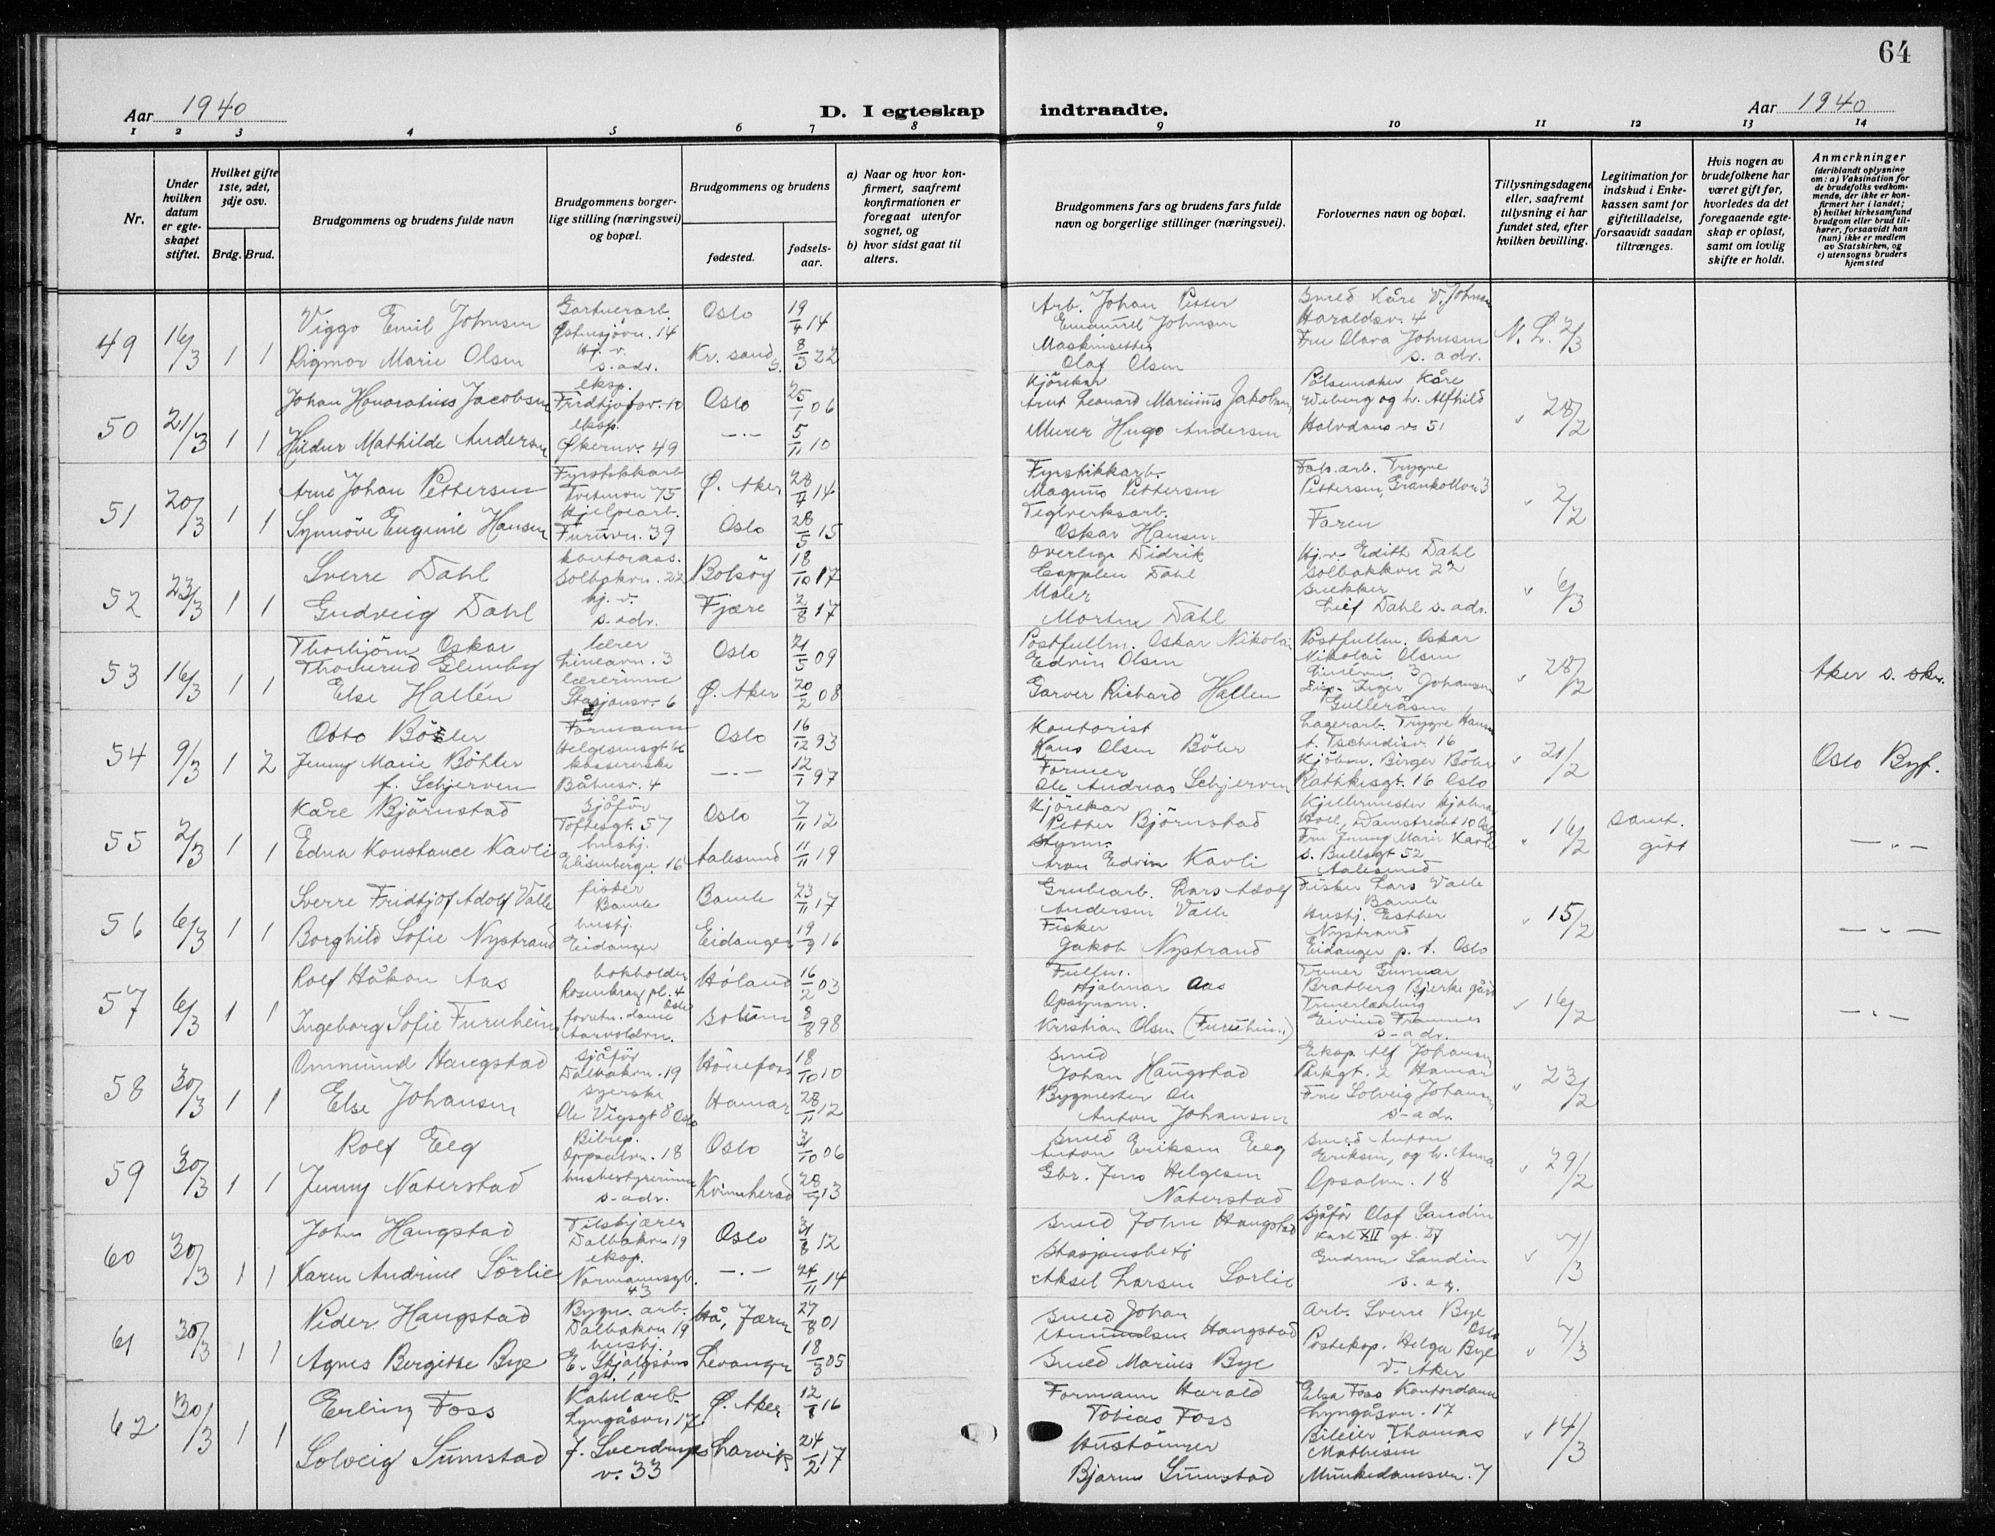 64
Aar 1940
D. I egteskap indtraadte.
Aar 1940
1 2 3 4 5 6 7 8 9 10 11 12 13 14
Nr.
Under hvilken datum er egteskapet stiftet.
Hvilket gifte 1ste, 2det, 3dje osv.
Brdg. Brud.
Brudgommens og brudens fulde navn
Brudgommens borgerlige stilling (næringsvei) og bopæl.
Brudgommens og brudens
fødested.
fødselsaar.
a) Naar og hvor konfirmert, saafremt konfirmationen er foregaat utenfor sognet, og
b) hvor sidst gaat til alters.
Brudgommens fars og brudens fars fulde navn og borgerlige stillinger (næringsvei).
Forlovernes navn og bopæl.
Tillysningsdagene eller, saafremt tillysning ei har fundet sted, efter hvilken bevilling.
Legitimation for indskud i Enkekassen samt for giftetilladelse, forsaavidt saadan tiltrænges.
Hvis nogen av brudefolkene har været gift før, hvorledes da det foregaaende egteskap er opløst, samt om lovlig skifte er holdt.
Anmerkninger
(deriblandt oplysning om: a) Vaksination for de brudefolks vedkommende, der ikke er konfirmert her i landet;
b) hvilket kirkesamfund brudgom eller brud tilhører, forsaavidt han (hun) ikke er medlem av Statskirken, og
c) utensogns bruders hjemsted
49 16/3 1 1
Viggo Emil Johnsen Gartnerarb. Østensjøvn. 14 Oslo 19/4 14 Arb. Johan Petter Emanuel Johnsen Smed Kåre V. Johnsen Haraldsv. 4 N. L. 2/3
Rigmor Marie Olsen Hj. v. s. adr. Kr. sand S. 8/3 22 Maskinsetter Olaf Olsen Fru Clara Johnsen s. adr.
50 21/3 1 1
Johan Honoratius Jacobsen eksp. Fridtjofsv. 10 Oslo 25/1 06 Kjørekar Arnt Leonard Marinius Jakobsen Pølsemaker Kåre Wiberg og h. Alfhild Halvdans v. 51 " 28/2
Hildur Mathilde Andersen eksp. Økernv. 49 -"- 5/11 10 Murer Hugo Andersen
51 20/3 1 1
Arne Johan Pettersen Fyrstikkarb. Tvetenvn 75 Ø. Aker 28/4 14 Fyrstikkarb. Magnus Pettersen Fabr. arb. Trygve Pettersen, Grankollvn 3 " 2/2
Synnöve Eugenie Hansen hjelpearb. Furuvn. 39 Oslo 28/5 15 Teglverksarb. Oskar Hansen Faren
52 23/3 1 1
Sverre Dahl kontorass. Solbakvn. 22 Bolsøy 18/10 17 Overlege Didrik Cappelen Dahl Hj. v. Edith Dahl Solbakkvn 22 " 6/3
Gudveig Dahl hj. v. s. adr. Fjære 2/8 17 Maler Morten Dahl snekker Leif Dahl s. adr.
53 16/3 1 1
Thorbjörn Oskar Thorerud Glenby lærer Lineavn. 3 Oslo 21/5 09 Postfullm. Oskar Nikolai Edvin Olsen Postfullm. Oskar Nikolai Olsen Lineavn. 3 " 28/2 Aker s. skr.
Else Hallén lærerinne Stasjonsv. 6 Ø. Aker 20/2 08 Garver Richard Hallen Inger Johansen Gulleråsen
54 9/3 1 2
Otto Böhler Formann Helgesensgt 66 Oslo 16/12 93 Kontorist Hans Olsen Böler Lagerarb. Trygve Hansen A. Tschudisv. 16 " 21/2 Oslo Byf.
Jenny Marie Böhler f. Schjerven kassererske Båhusv. 4 -"- 12/1 97 Former Ole Andreas Schjerven Kjøbm. Birger Böler Rathkesgt. 16 Oslo
55 2/3 1 1
Kåre Björnstad Sjåför Toftesgt. 57 Oslo 7/11 12 Kjörekar Petter Björnstad Kjellermester Hjalmar Damstredet 10 Oslo " 16/2 Samt. gitt -"-
Edna Konstance Kavli hushj. Elisenbergv. 16 Aalesund 11/11 19 Styrm. Aron Edvin Kavli Fru Jenny Marie Kavli s. Bullsgt 52 Aalesund
56 6/3 1 1
Sverre Fridtjof Adolf Valle fisker Bamle Bamle 23/11 17 Grubearb. Lars Adolf Andersen Valle Fisker Lars Valle Bamle " 15/2 -"-
Borghild Sofie Nystrand hushj. Eidanger Eidanger 19/9 16 Fisker Jakob Nystrand Hushj. Esther Nystrand Eidanger p. t. Oslo
57 6/3 1 1
Rolf Håkon Aas bokholder Rosenkranz pl. 4 Oslo Høland 16/2 03 Fullm. Hjalmar Aas Gunnar Bratberg Bjerke gård " 16/2 -"-
Ingeborg Sofie Furuheim forretn. dame Aarvoldvn. Solum 8/8 98 Opsynsm. Kristian Olsen (Furuheim) Eivind s-adr.
58 30/3 1 1
Ommund Haugstad sjåför Dalbakvn. 19 Hönefoss 18/10 10 Smed Johan Haugstad Eksp. Alf Johansen Parkgt. 2 Hamar " 23/2
Else Johansen syerske Ole Vigsgt 8 Oslo Hamar 28/11 12 Bygmester Ole Anton Johansen Fru Solveig Johansen s-adr.
59 30/3 1 1
Rolf Eeg Oppsalvn. 18 Oslo 3/10 06 Smed Anton Eriksen Eeg Smed Anton Eriksen, og h. Anna Opsalvn. 18 " 29/2
Jenny Naterstad husbestyrerinne s-adr. Kvinnherad 28/9 13 Gbr. Jens Helgesen Naterstad
60 30/3 1 1
John Haugstad Dalbakvn 19 Oslo 31/8 12 Smed John Haugstad Sjåför Olaf Sandin Karl XII gt. 27 " 7/3
Karen Andrine Sörlie eksp. Normannsgt. 43 -"- 24/11 14 Stasjonsbetj Aksel Larsen Sorlie Gudrun Sandin s. adr.
61 30/3 1 1
Peder Haugstad Bygn. arb. Dalbakvn 19 Hå, Jæren 27/8 01 Smed Johan Amundsen Haugstad Arb. Sverre Bye Oslo " 7/3
Agnes Bergitte Bye hushj. E. Skjalgsöns gt. 1 Levanger 18/3 05 Smed Marius Bye Posteksp. Helga Bye V. Aker
62 30/3 1 1
Erling Foss Kabelarb. Lyngåsvn. 17 Ø. Aker 12/8 16 Formann Harald Tobias Foss Elsa Foss Kontordame Lyngåsvn. 17 " 14/3
Solveig Sumstad J. Sverdrups v. 33 Larvik 24/2 17 Hustömmer Bjarne Sumstad Bileier Thomas Mathisen Munkedamsvn. 7